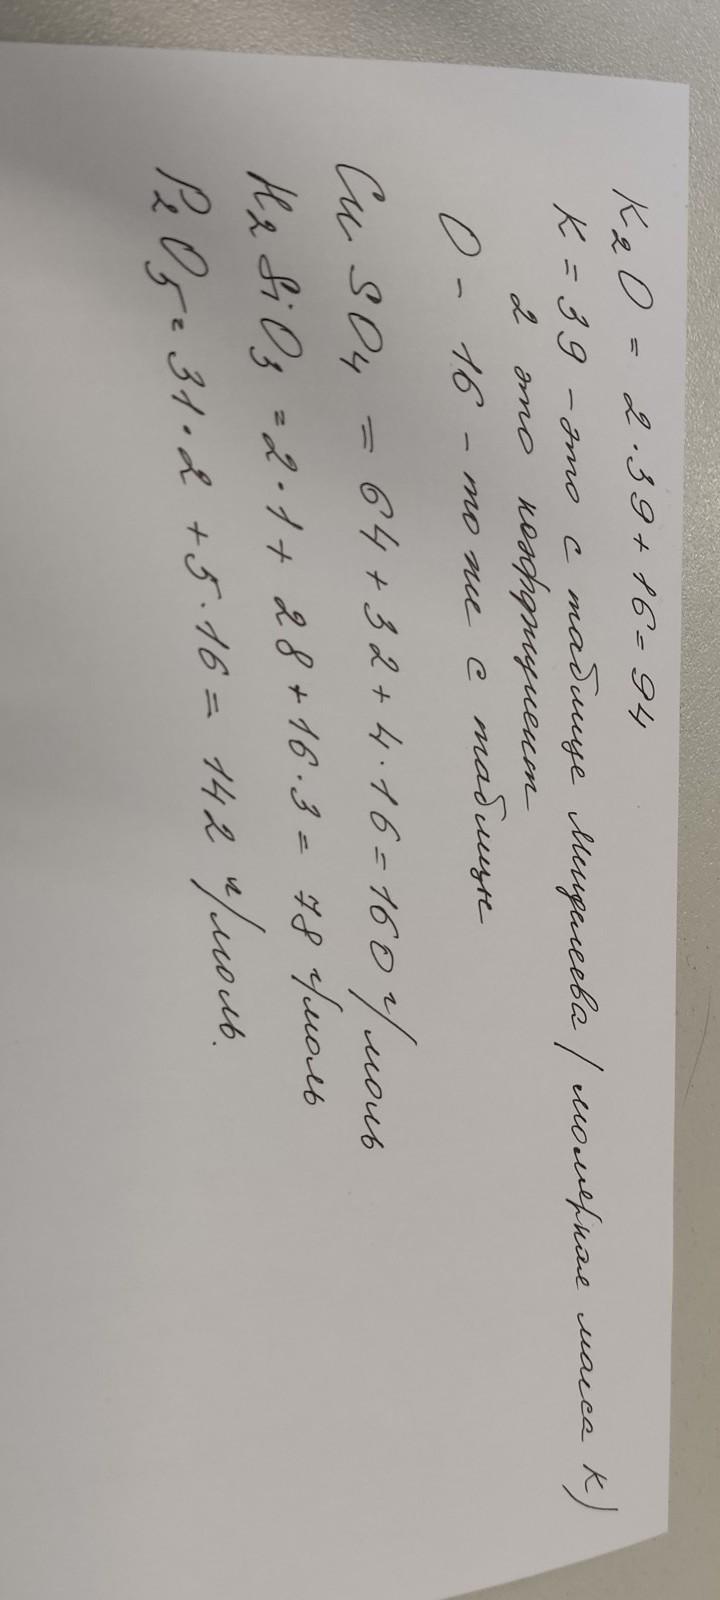 K₂O = 2·39+16=94
K = 39 – это с таблице Мендлеева (молярная масса K)
2 это коэффициент
O – 16 – то же с таблицы
CuSO₄ = 64+32+4·16=160 г/моль
H₂SiO₃ = 2·1+28+16·3=78 г/моль
P₂O₅ = 31·2+5·16=142 г/моль.